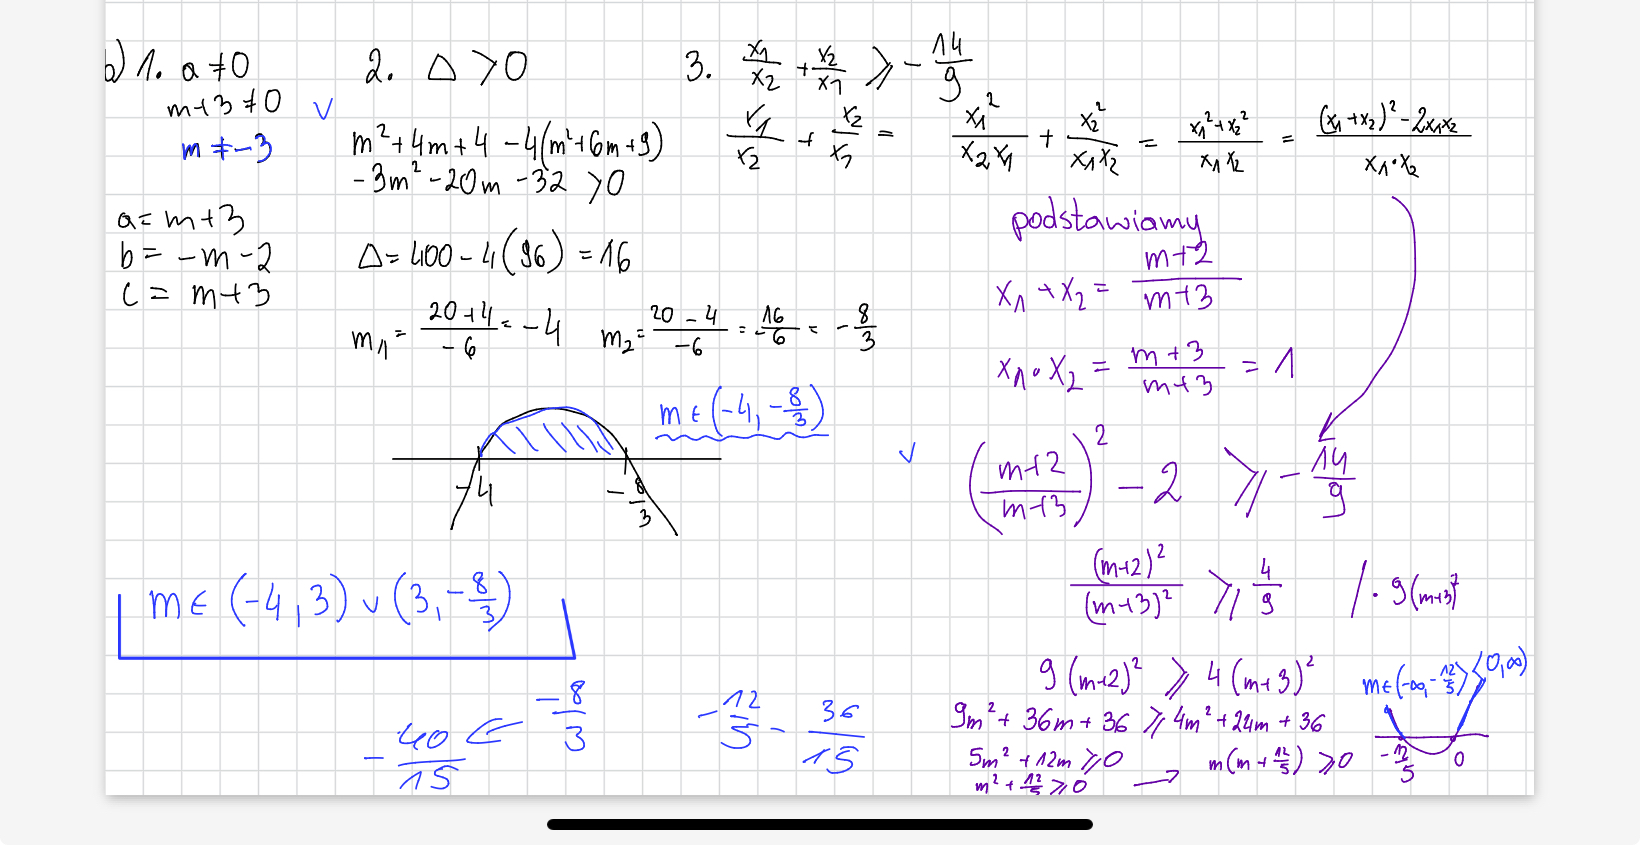 b) 1. a ≠ 0
m+3 ≠ 0 v
m ≠ -3
a = m+3
b = -m-2
c = m+3
2. Δ > 0
m² + 4m + 4 - 4(m² + 6m + 9)
-3m² - 20m - 32 > 0
Δ = 400 - 4(96) = 16
m₁ = (20+4)/(-6) = -4 m₂ = (20-4)/(-6) = 16/(-6) = -8/3
m ∈ (-4, -8/3) v
-4 -8/3
3. x₁/x₂ + x₂/x₁ ⩾ -14/9
x₁/x₂ + x₂/x₁ = x₁²/(x₂x₁) + x₂²/(x₁x₂) = (x₁²+x₂²)/(x₁x₂) = ((x₁+x₂)² - 2x₁x₂)/(x₁·x₂)
podstawiamy
x₁ + x₂ = (m+2)/(m+3)
x₁ · x₂ = (m+3)/(m+3) = 1
((m+2)/(m+3))² - 2 ⩾ -14/9
(m+2)²/(m+3)² ⩾ 4/9 /· 9(m+3)²
9(m+2)² ⩾ 4(m+3)²
9m² + 36m + 36 ⩾ 4m² + 24m + 36
5m² + 12m ⩾ 0
m² + 12/5 ⩾ 0 → m(m + 12/5) ⩾ 0
m ∈ (-∞, -12/5⟩ ⟨0, ∞)
-12/5 0
m ∈ (-4, 3) v (3, -8/3)
-40/15 ⇐ -8/3
-12/5 = 36/15